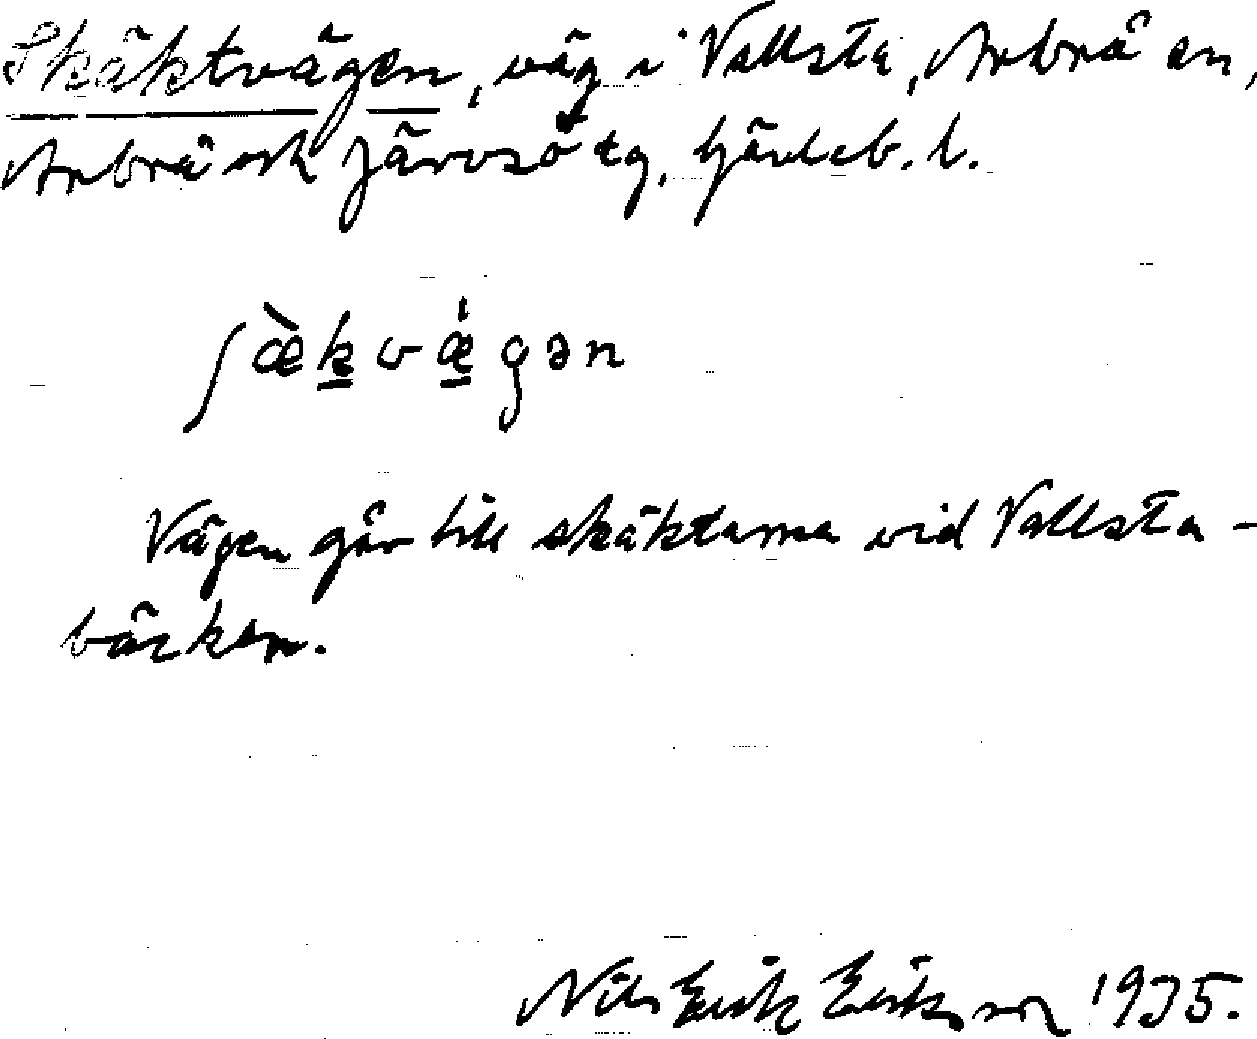 Skäktvägen, väg i Vallsta, Arbrå sn,
Arbrå och Järvsö tg, Gävleb. l.
ʃæ̀k̲vǽ̲gən
Vägen går till skäktarna vid Vallsta-
bäcken.
Nils Erik Eriksson 1935.